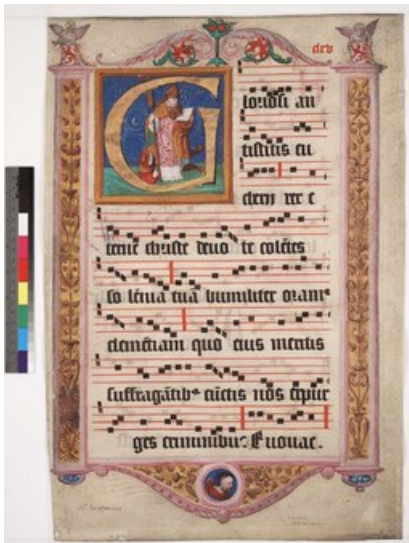 clxv
Gloriosi an
tistitis eu
cterne christe deuo te colētes
so lēnia tua humiliter oramꝰ
clemētiam quo eius meritis
suffragātibꝰ cūctis nos expur
ges criminibus. Euouae.